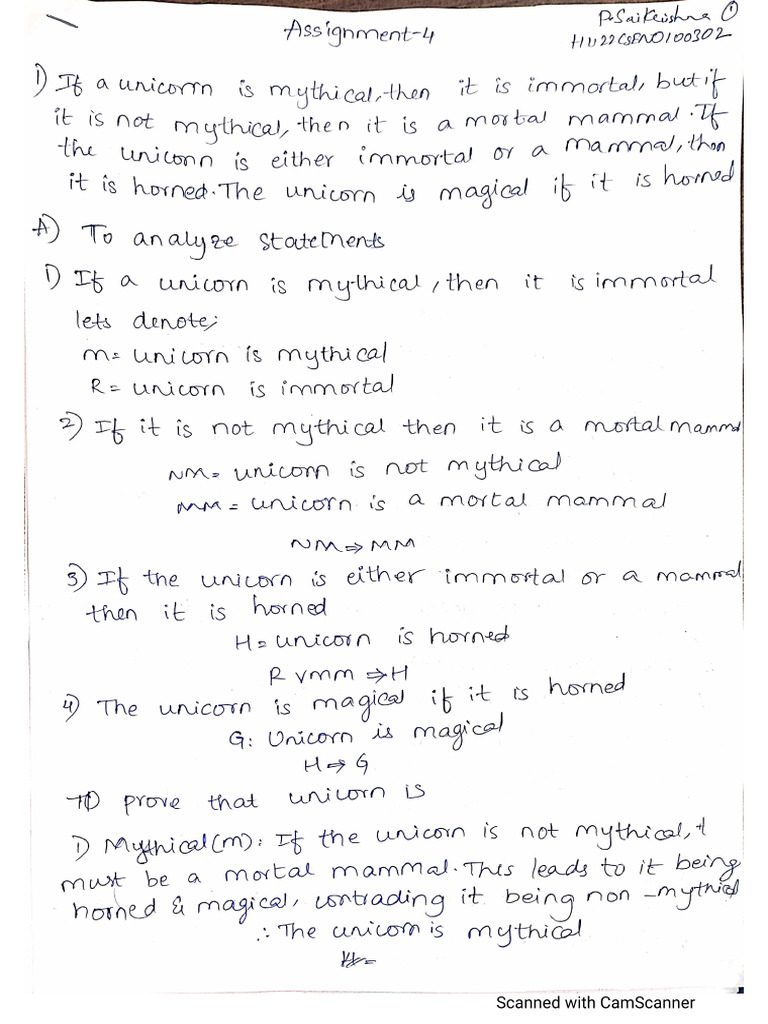 Assignment-4
P.SaiKrishna 1
HU22CSEN0100302
1) If a unicorn is mythical, then it is immortal, but if
it is not mythical, then it is a mortal mammal. If
the unicorn is either immortal or a mammal, then
it is horned. The unicorn is magical if it is horned
A) To analyze statements
1) If a unicorn is mythical, then it is immortal
lets denote;
M= unicorn is mythical
R= unicorn is immortal
2) If it is not mythical then it is a mortal mammal
NM= unicorn is not mythical
MM = unicorn is a mortal mammal
NM⇒MM
3) If the unicorn is either immortal or a mammal
then it is horned
H= unicorn is horned
R v mm ⇒ H
4) The unicorn is magical if it is horned
G: Unicorn is magical
H⇒ G
prove that unicorn is
1) Mythical(m): If the unicorn is not mythical,
must be a mortal mammal. This leads to it being
horned & magical, contrading it being non-mythical
∴ The unicorn is mythical
Scanned with CamScanner